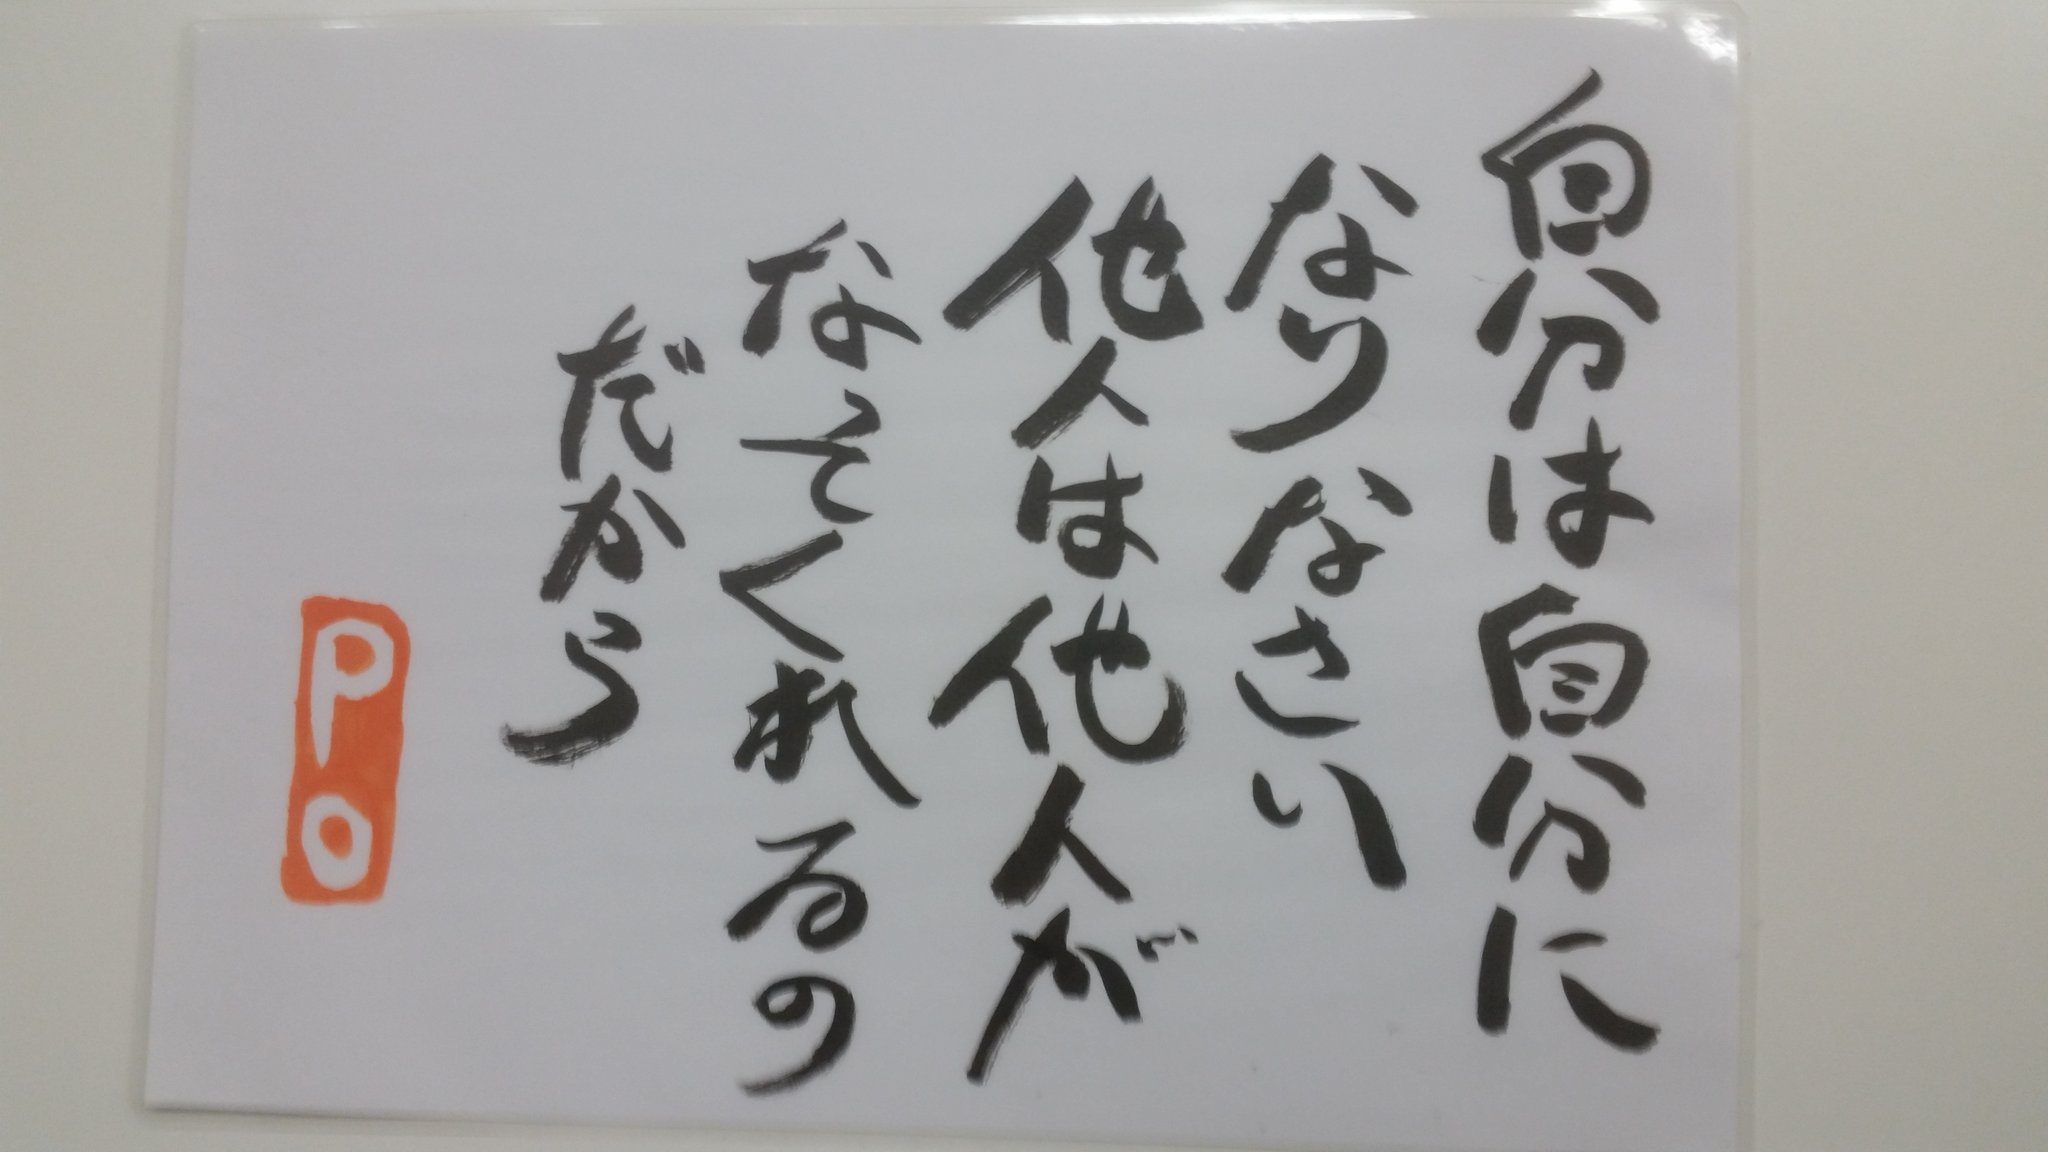 自分は自分に
なりなさい
他人は他人が
なってくれるの
だから
PO